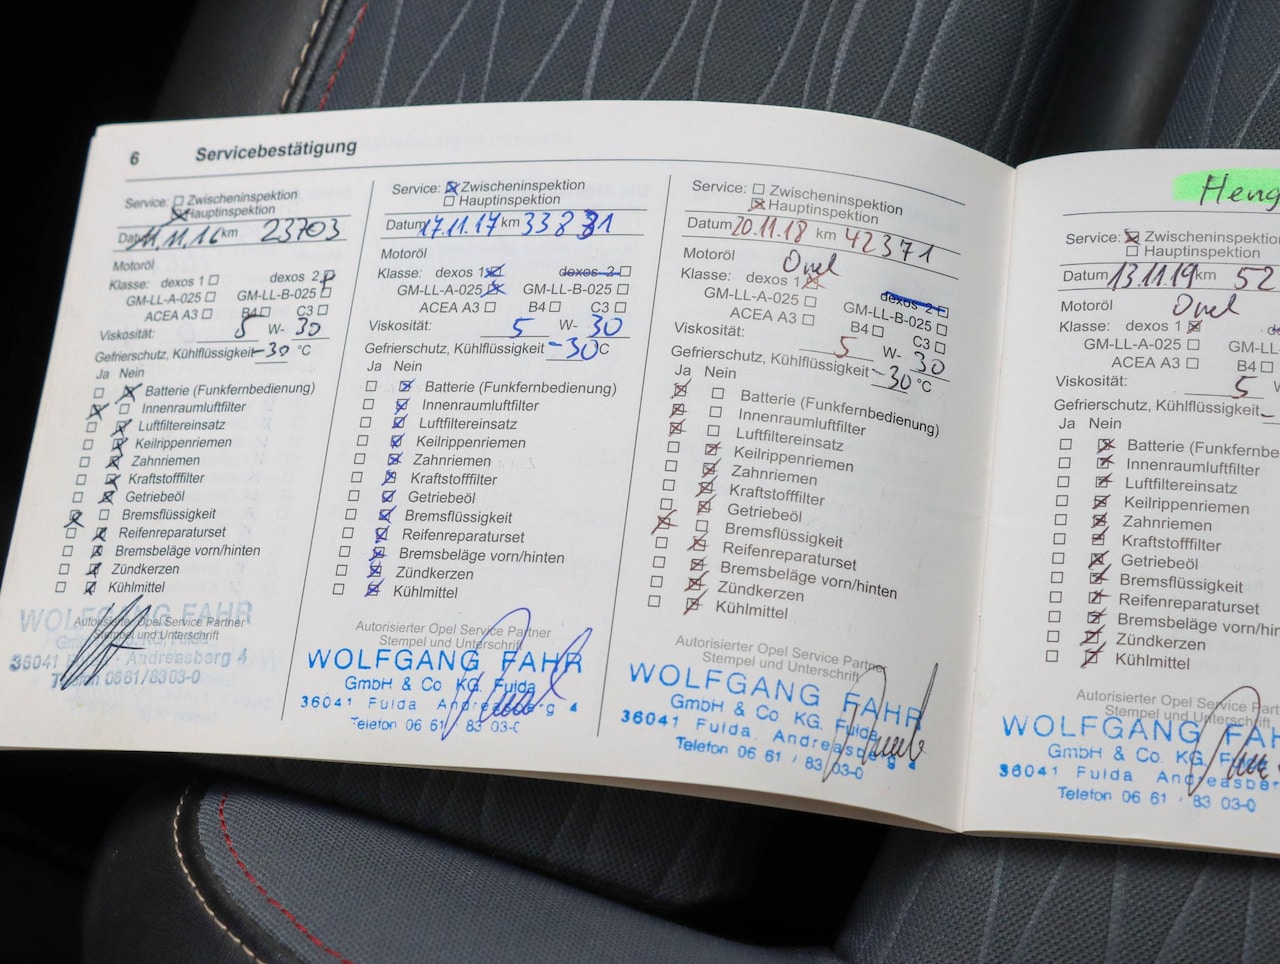 6 Servicebestätigung
Service: Zwischeninspektion
Hauptinspektion
Datum 11.11.16 km 23703
Motoröl
Klasse: dexos 1 dexos 2
GM-LL-A-025 GM-LL-B-025
ACEA A3 B4 C3
Viskosität: 5 W- 30
Gefrierschutz, Kühlflüssigkeit -30 °C
Ja Nein
Batterie (Funkfernbedienung)
Innenraumluftfilter
Luftfiltereinsatz
Keilrippenriemen
Zahnriemen
Kraftstofffilter
Getriebeöl
Bremsflüssigkeit
Reifenreparaturset
Bremsbeläge vorn/hinten
Zündkerzen
Kühlmittel
Autorisierter Opel Service Partner
Stempel und Unterschrift
WOLFGANG FAHR
GmbH & Co KG, Fulda
36041 Andreasberg 4
Telefon 0661/8303-0
Service: Zwischeninspektion
Hauptinspektion
Datum 17.11.17 km 33831
Motoröl
Klasse: dexos 1 dexos 2
GM-LL-A-025 GM-LL-B-025
ACEA A3 B4 C3
Viskosität: 5 W- 30
Gefrierschutz, Kühlflüssigkeit -30 °C
Ja Nein
Batterie (Funkfernbedienung)
Innenraumluftfilter
Luftfiltereinsatz
Keilrippenriemen
Zahnriemen
Kraftstofffilter
Getriebeöl
Bremsflüssigkeit
Reifenreparaturset
Bremsbeläge vorn/hinten
Zündkerzen
Kühlmittel
Autorisierter Opel Service Partner
Stempel und Unterschrift
WOLFGANG FAHR
GmbH & Co KG. Fulda
36041 Fulda Andreasberg 4
Telefon 06 61 / 83 03-0
Service: Zwischeninspektion
Hauptinspektion
Datum 20.11.18 km 42371
Motoröl Opel
Klasse: dexos 1 dexos 2
GM-LL-A-025 GM-LL-B-025
ACEA A3 B4 C3
Viskosität: 5 W- 30
Gefrierschutz, Kühlflüssigkeit -30 °C
Ja Nein
Batterie (Funkfernbedienung)
Innenraumluftfilter
Luftfiltereinsatz
Keilrippenriemen
Zahnriemen
Kraftstofffilter
Getriebeöl
Bremsflüssigkeit
Reifenreparaturset
Bremsbeläge vorn/hinten
Zündkerzen
Kühlmittel
Autorisierter Opel Service Partner
Stempel und Unterschrift
WOLFGANG FAHR
GmbH & Co. KG. Fulda
36041 Fulda, Andreasberg 4
Telefon 06 61 / 83 03-0
Heng
Service: Zwischeninspektio
Hauptinspektion
Datum 13.11.19 km 52
Motoröl Opel
Klasse: dexos 1 de
GM-LL-A-025 GM-LL-
ACEA A3 B4
Viskosität: 5 W
Gefrierschutz, Kühlflüssigkeit -
Ja Nein
Batterie (Funkfernbe
Innenraumluftfilter
Luftfiltereinsatz
Keilrippenriemen
Zahnriemen
Kraftstofffilter
Getriebeöl
Bremsflüssigkeit
Reifenreparaturset
Bremsbeläge vorn/hin
Zündkerzen
Kühlmittel
Autorisierter Opel Service Part
Stempel und Unterschrift
WOLFGANG FAH
GmbH & Co. KG. Fulda
36041 Fulda Andreasber
Telefon 06 61 / 83 03-0